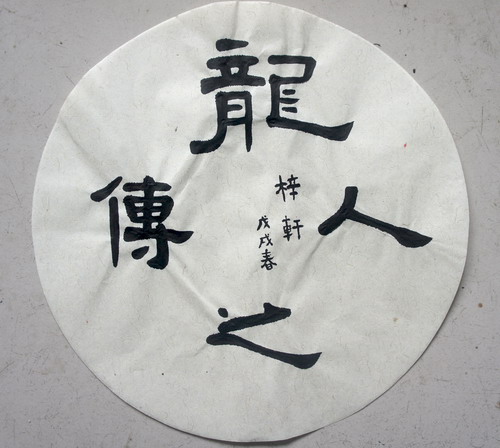 龍
之
傳
人
梓軒
戊戌春